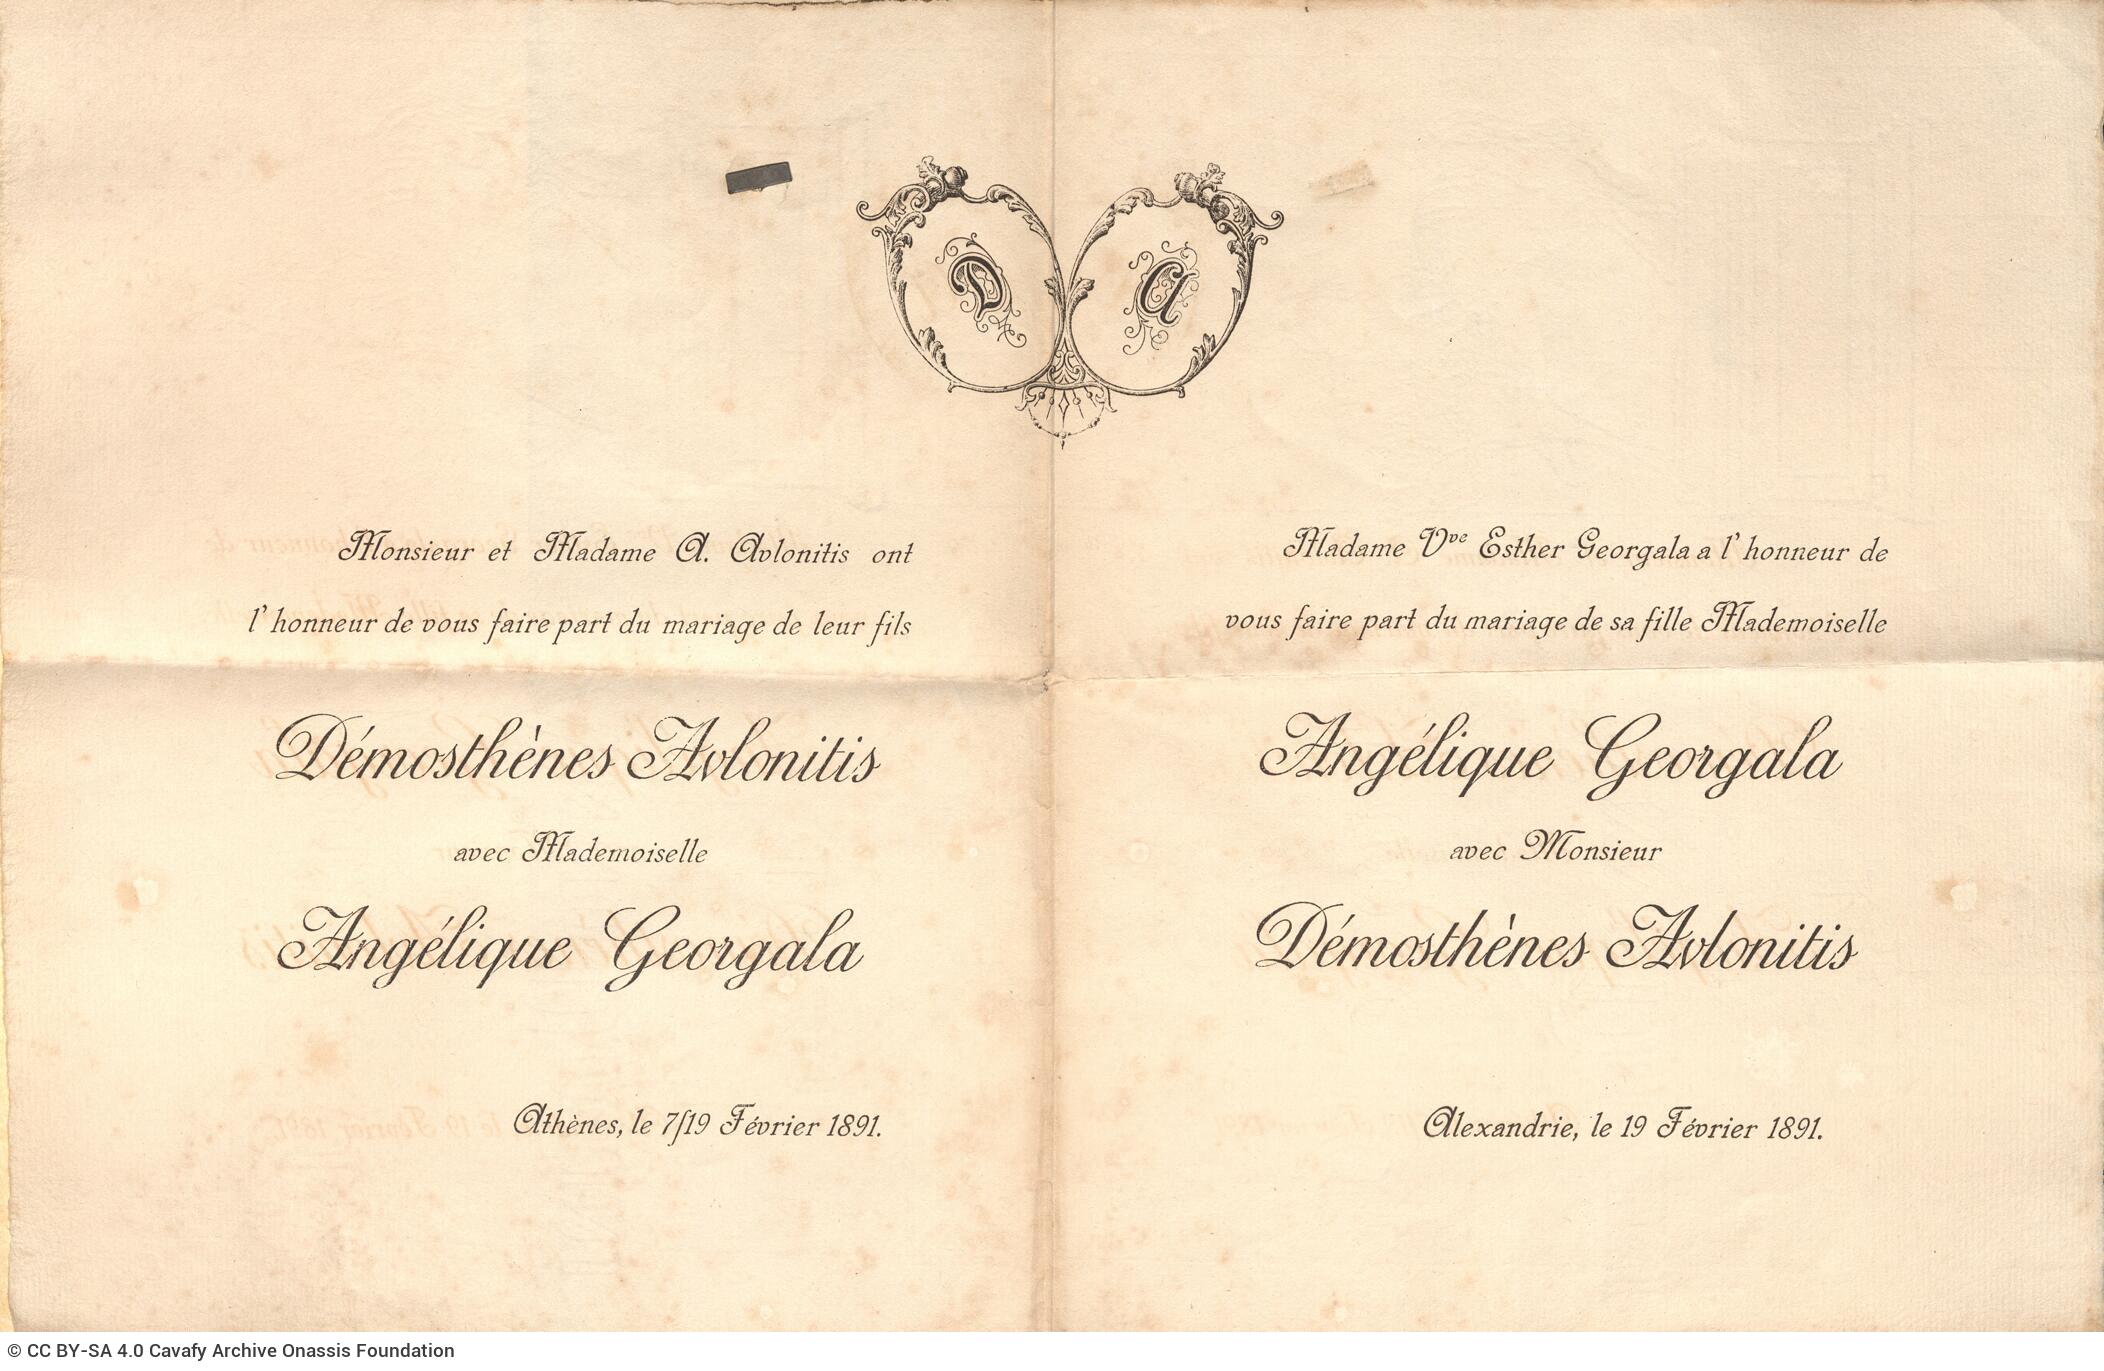 D A
Monsieur et Madame A. Avlonitis ont
l'honneur de vous faire part du mariage de leur fils
Démosthènes Avlonitis
avec Mademoiselle
Angélique Georgala
Athènes, le 7/19 Février 1891.
Madame Vve Esther Georgala a l'honneur de
vous faire part du mariage de sa fille Mademoiselle
Angélique Georgala
avec Monsieur
Démosthènes Avlonitis
Alexandrie, le 19 Février 1891.
© CC BY-SA 4.0 Cavafy Archive Onassis Foundation